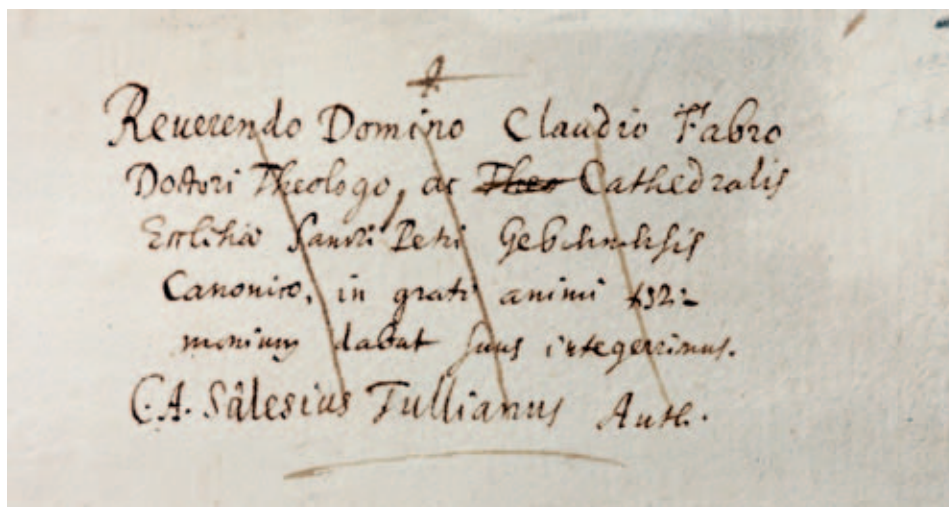 Reuerendo Domino Claudio Fabro
Doctori Theologo, ac Theo Cathedralis
Ecclesiæ Sancti Petri Gebennensis
Canonico, in grati animi testi-
monium dabat suus integerrimus.
C. A. Sâlesius Tullianus Auth.